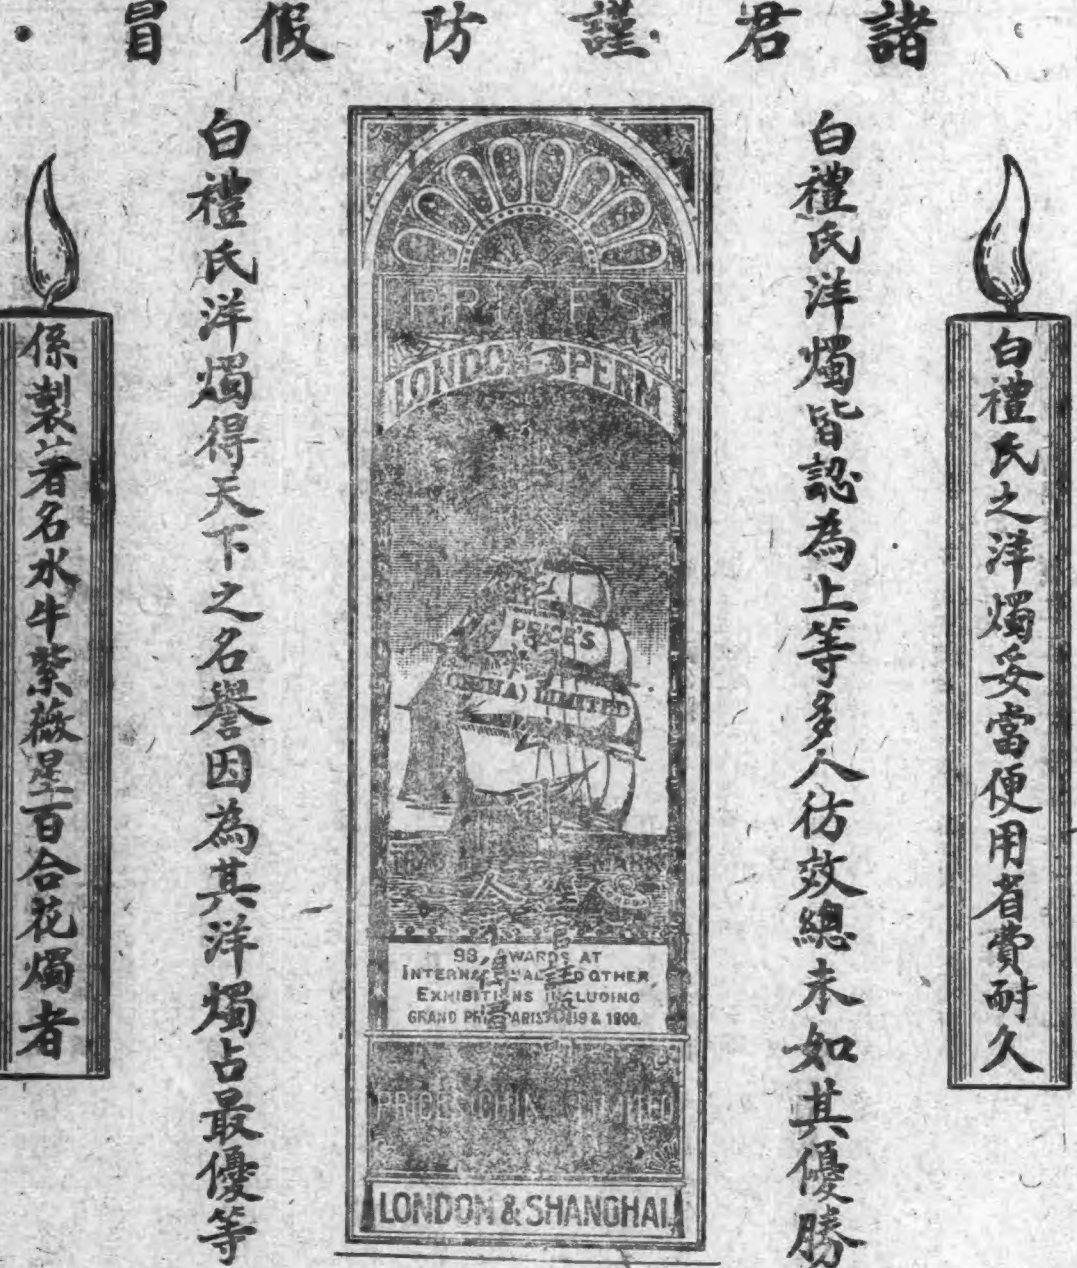 諸君謹防假冒
白禮氏之洋燭妥當便用省費耐久
白禮氏洋燭皆認為上等多人彷效總未如其優勝
PRICE'S
LONDON SPERM
PRICE'S
(CHINA) LIMITED
TRADE MARK
98 AWARDS AT
INTERNATIONAL AND OTHER
EXHIBITIONS INCLUDING
GRAND PRIX PARIS & 1900.
PRICE'S (CHINA) LIMITED
LONDON & SHANGHAI.
白禮氏洋燭得天下之名譽因為其洋燭占最優等
係製著名水牛紫薇星百合花燭者